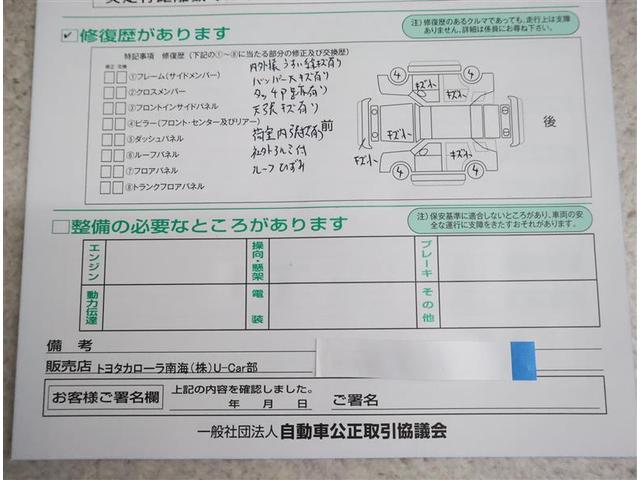 注）修復歴のあるクルマであっても、走行上は支障
ありません。詳細は係員にお尋ね下さい。
修復歴があります
特記事項 修復歴（下記の①～⑧に当たる部分の修正及び交換歴）
修正 交換
①フレーム（サイドメンバー）
②クロスメンバー
③フロントインサイドパネル
④ピラー（フロント・センター及びリアー）
⑤ダッシュパネル
⑥ルーフパネル
⑦フロアパネル
⑧トランクフロアパネル
内外装 うすい線キズ有り
バンパー大キズ有り
タッチP呈有り
天張キズ有り
荷室内張キズ有
社外アルミ付
ルーフひずみ
前
後
4
4
4
4
キズ
キズ
キズ
キズ
キズ
整備の必要なところがあります
注）保安基準に適合しないところがあり、車両の安
全な運行に支障をきたすおそれがあります。
エンジン
操向・懸架
ブレーキ
動力伝達
電装
その他
備考
販売店 トヨタカローラ南海（株）U-Car部
お客様ご署名欄
上記の内容を確認しました。
年 月 日
ご署名
一般社団法人 自動車公正取引協議会